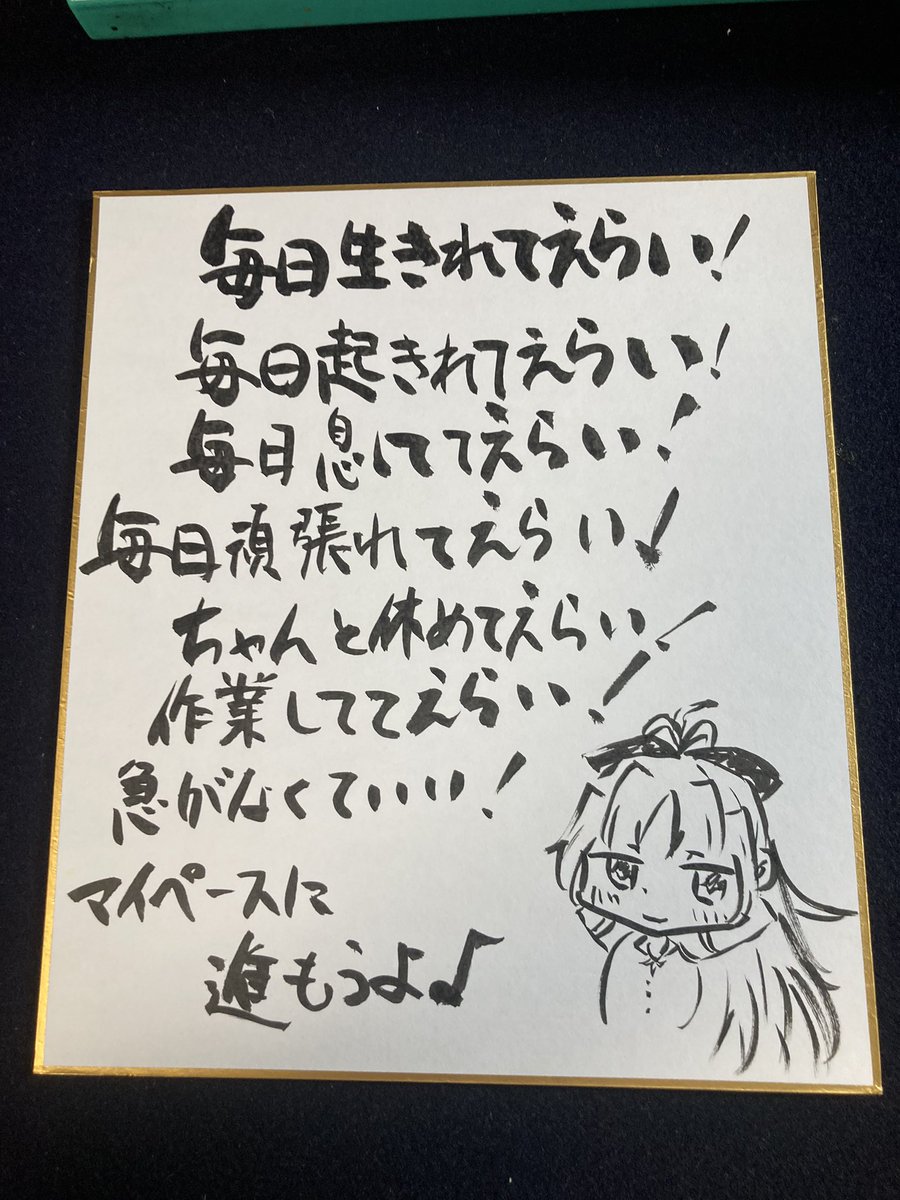 毎日生きれてえらい!
毎日起きれてえらい!
毎日息しててえらい!
毎日頑張れてえらい!
ちゃんと休めてえらい!
作業しててえらい!
急がなくていい!
マイペースに
進もうよ♪